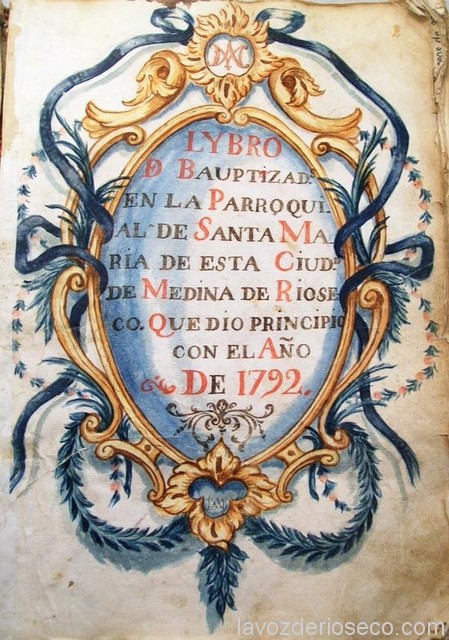 LYBRO
D BAUPTIZADˢ
EN LA PARROQUI
AL DE SANTA MA
RIA DE ESTA CIUDᵈ
DE MEDINA DE RIOSE
CO. QUE DIO PRINCIPIO
CON EL AÑO
DE 1792.
lavozderioseco.com